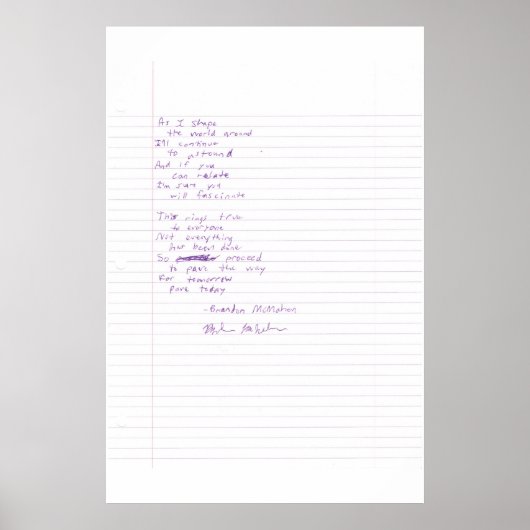 As I shape
the world around
I'll continue
to astound
And if you
can relate
I'm sure you
will fascinate
This rings true
to everyone
Not everything
has been done
So proceed
to pave the way
For tomorrow
Pave today
-Brandon McMahon